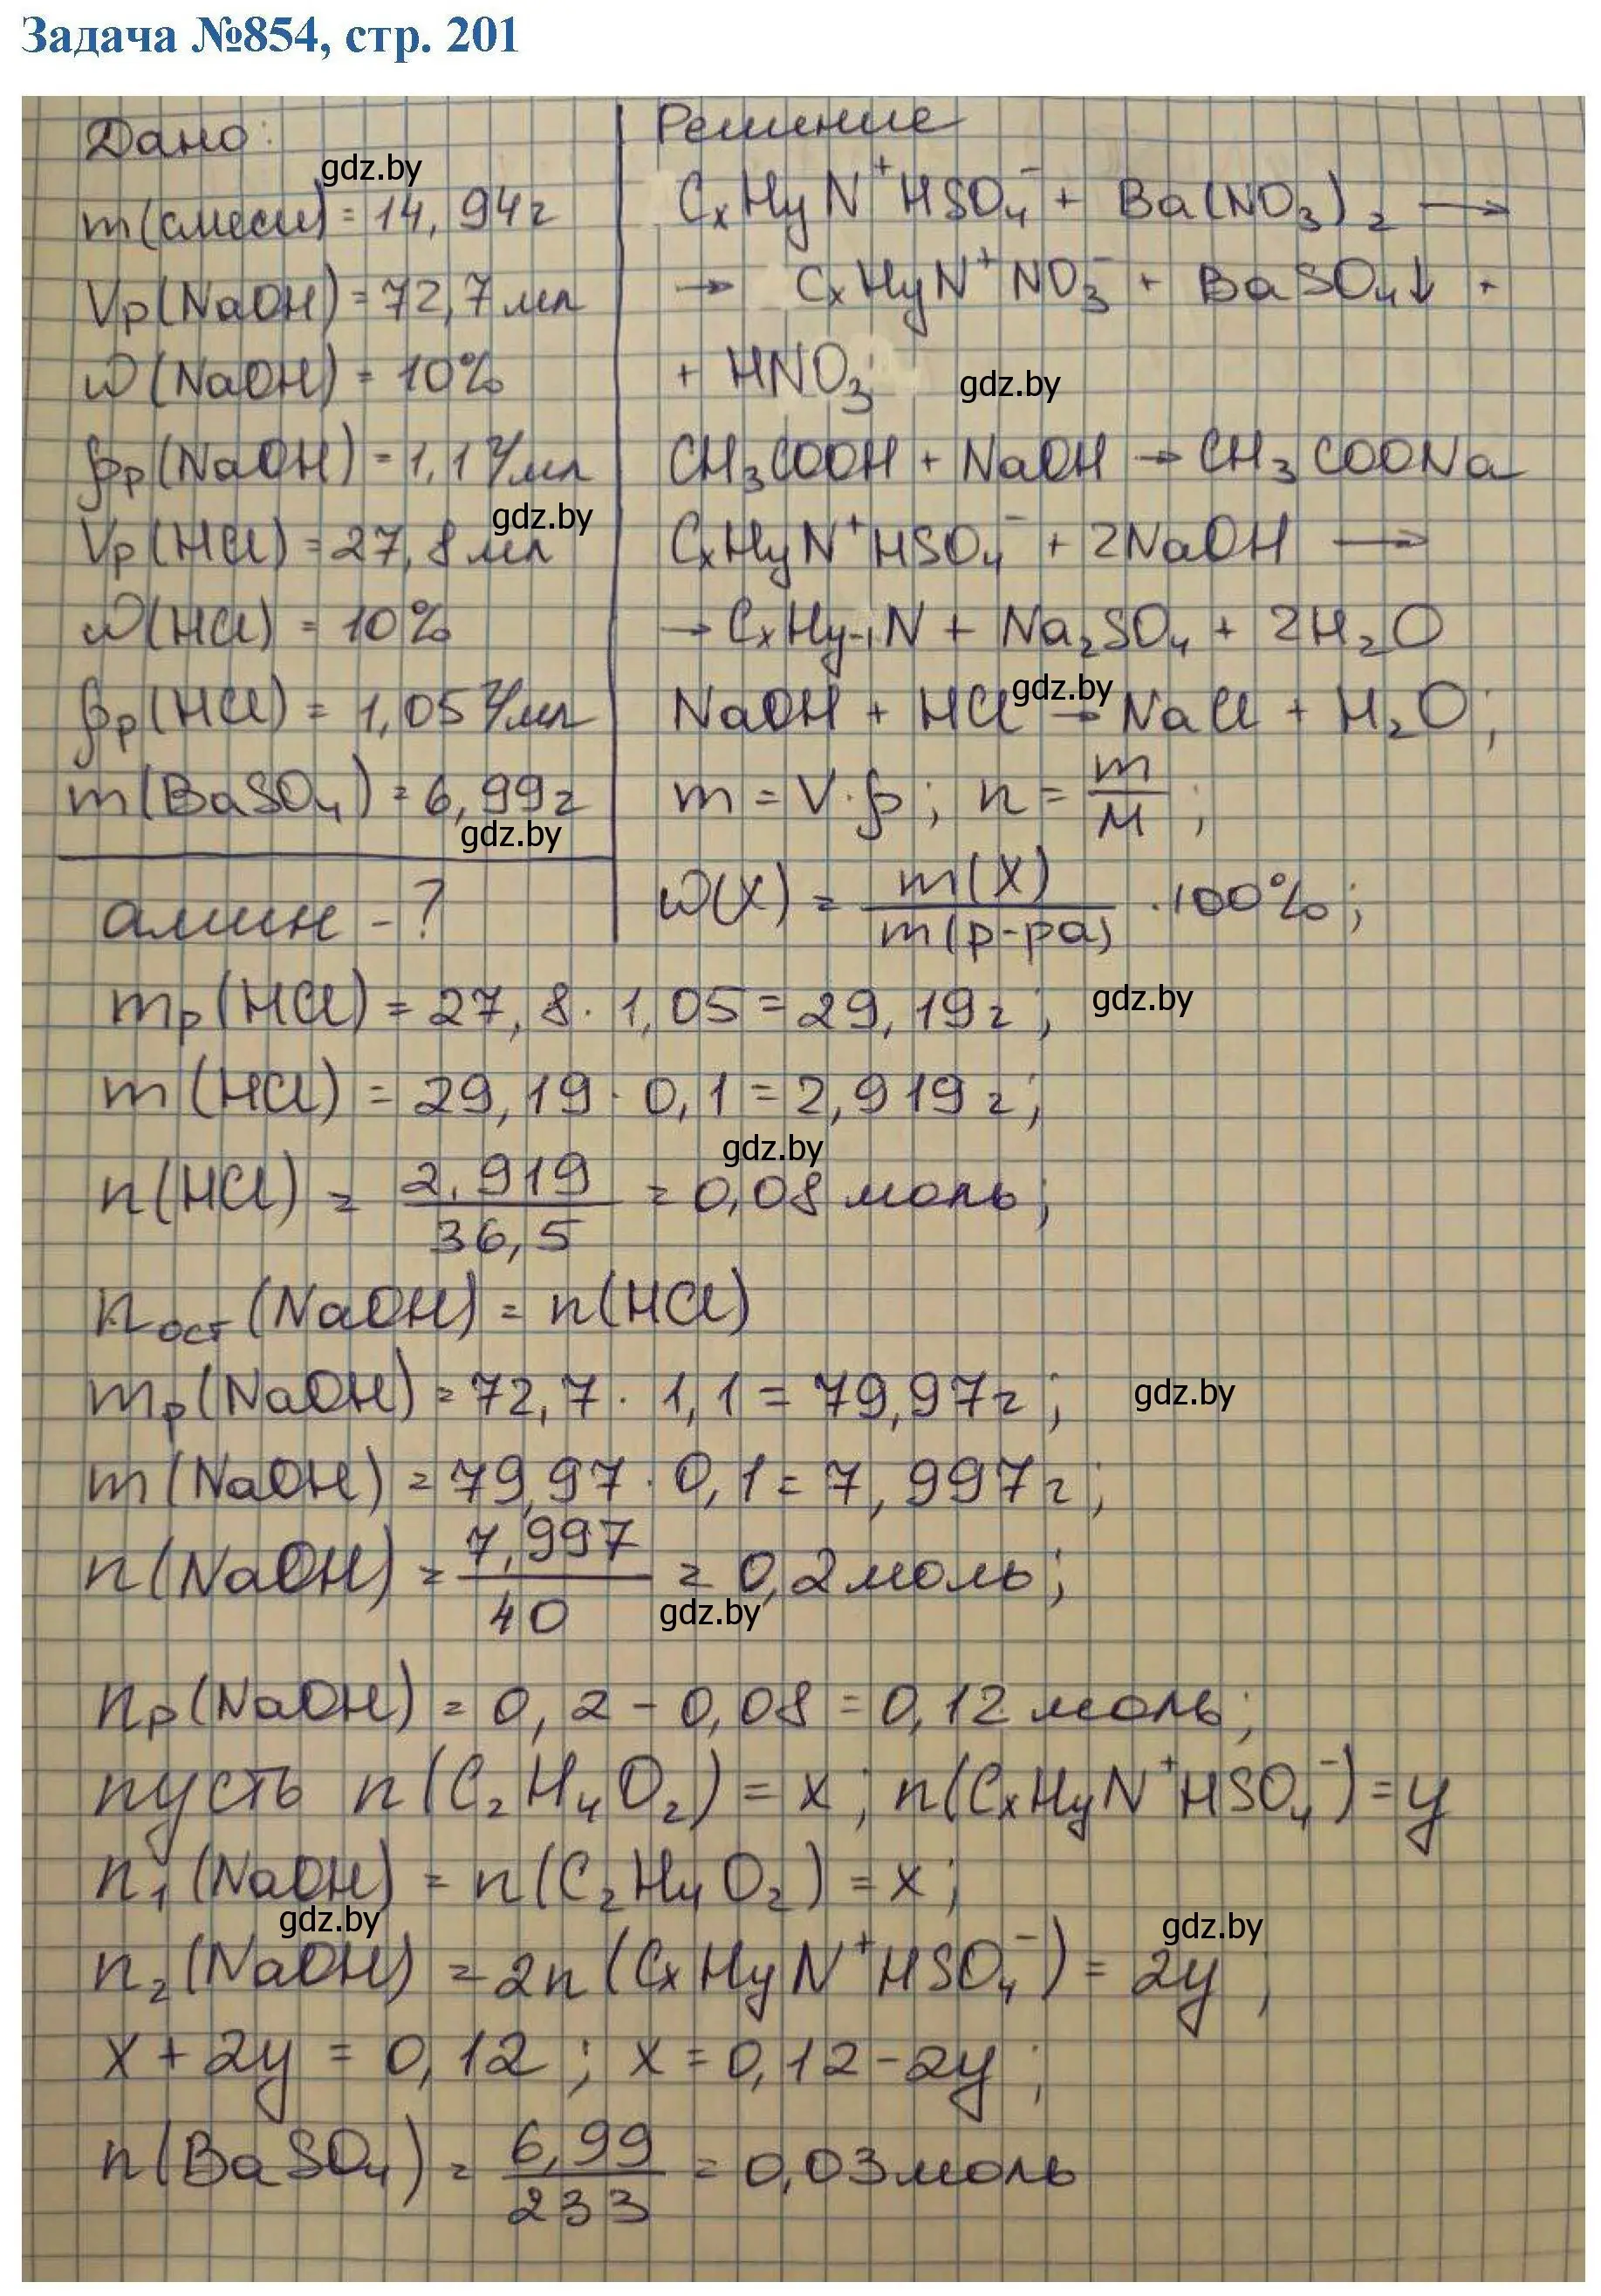 Задача №854, стр. 201
Дано:
gdz.by
m(смеси) = 14,94г
Vр(NaOH) = 72,7 мл
ω(NaOH) = 10%
ρр(NaOH) = 1,1 г/мл
gdz.by
Vр(HCl) = 27,8 мл
ω(HCl) = 10%
ρр(HCl) = 1,05 г/мл
m(BaSO₄) = 6,99г
gdz.by
амин - ?
Решение
CₓHyN⁺HSO₄⁻ + Ba(NO₃)₂ →
→ CₓHyN⁺NO₃⁻ + BaSO₄↓ +
+ HNO₃;
gdz.by
CH₃COOH + NaOH → CH₃COONa
CₓHyN⁺HSO₄⁻ + 2NaOH →
→ CₓHy-₁N + Na₂SO₄ + 2H₂O
gdz.by
NaOH + HCl → NaCl + H₂O;
m = V·ρ; n = m/M;
ω(X) = m(X)/m(р-ра) · 100%;
mр(HCl) = 27,8 · 1,05 = 29,19г;
gdz.by
m(HCl) = 29,19 · 0,1 = 2,919г;
gdz.by
n(HCl) = 2,919/36,5 = 0,08 моль;
nост(NaOH) = n(HCl)
mр(NaOH) = 72,7 · 1,1 = 79,97г;
gdz.by
m(NaOH) = 79,97 · 0,1 = 7,997г;
n(NaOH) = 7,997/40 = 0,2 моль;
gdz.by
nр(NaOH) = 0,2 - 0,08 = 0,12 моль;
пусть n(C₂H₄O₂) = x; n(CₓHyN⁺HSO₄⁻) = y
n₁(NaOH) = n(C₂H₄O₂) = x;
gdz.by
gdz.by
n₂(NaOH) = 2n(CₓHyN⁺HSO₄⁻) = 2y;
x + 2y = 0,12; x = 0,12 - 2y;
n(BaSO₄) = 6,99/233 = 0,03 моль